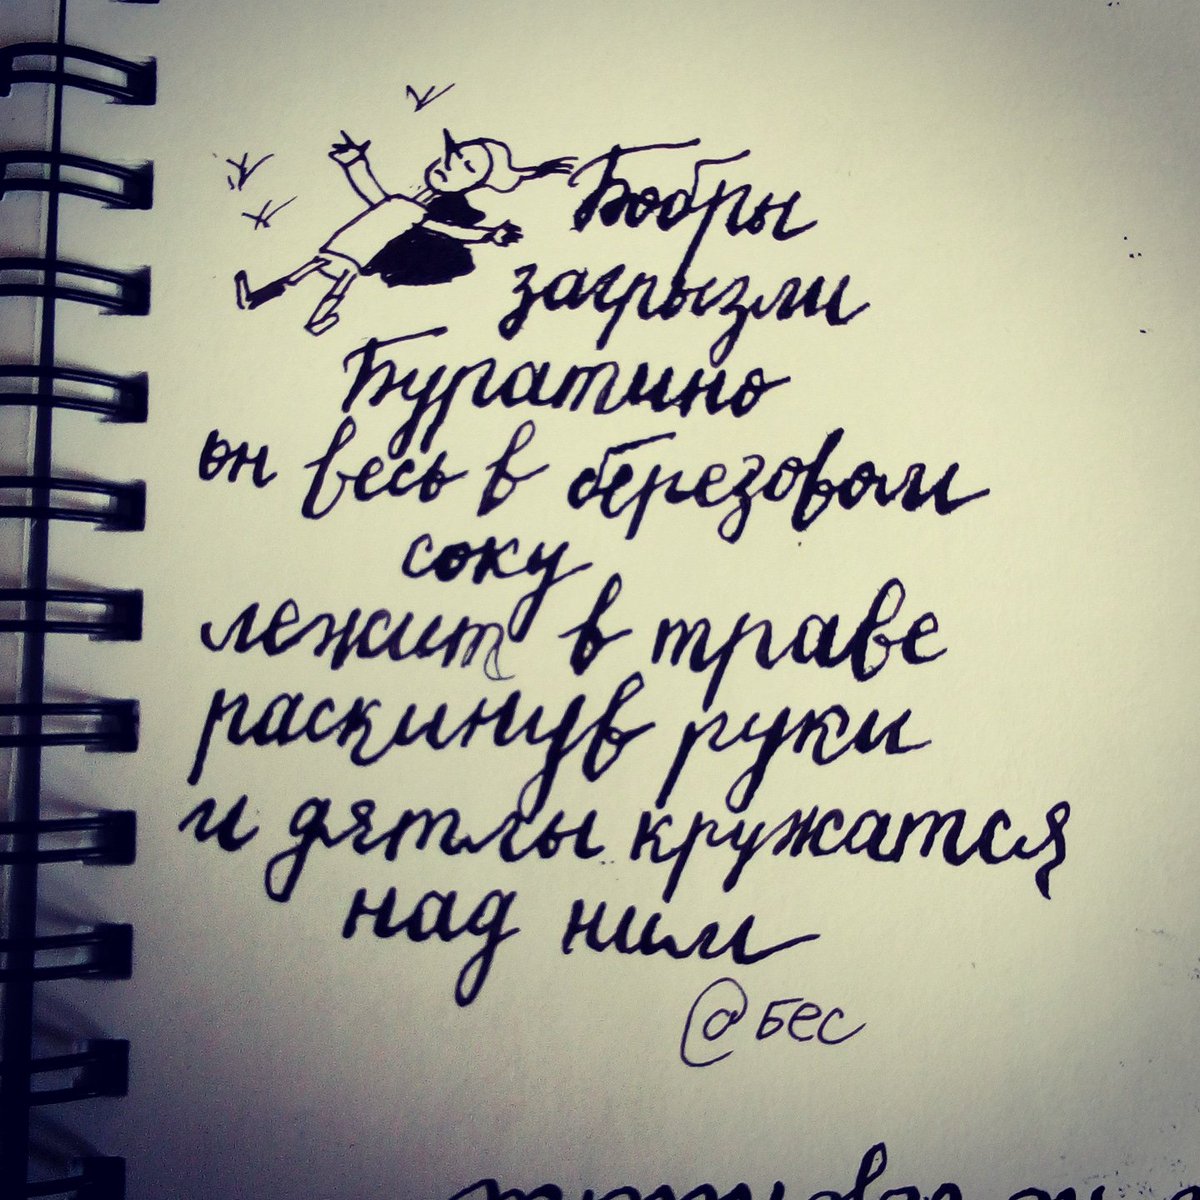 Бобры
загрызли
Буратино
он весь в березовом
соку
лежит в траве
раскинув руки
и дятлы кружатся
над ним
@бес